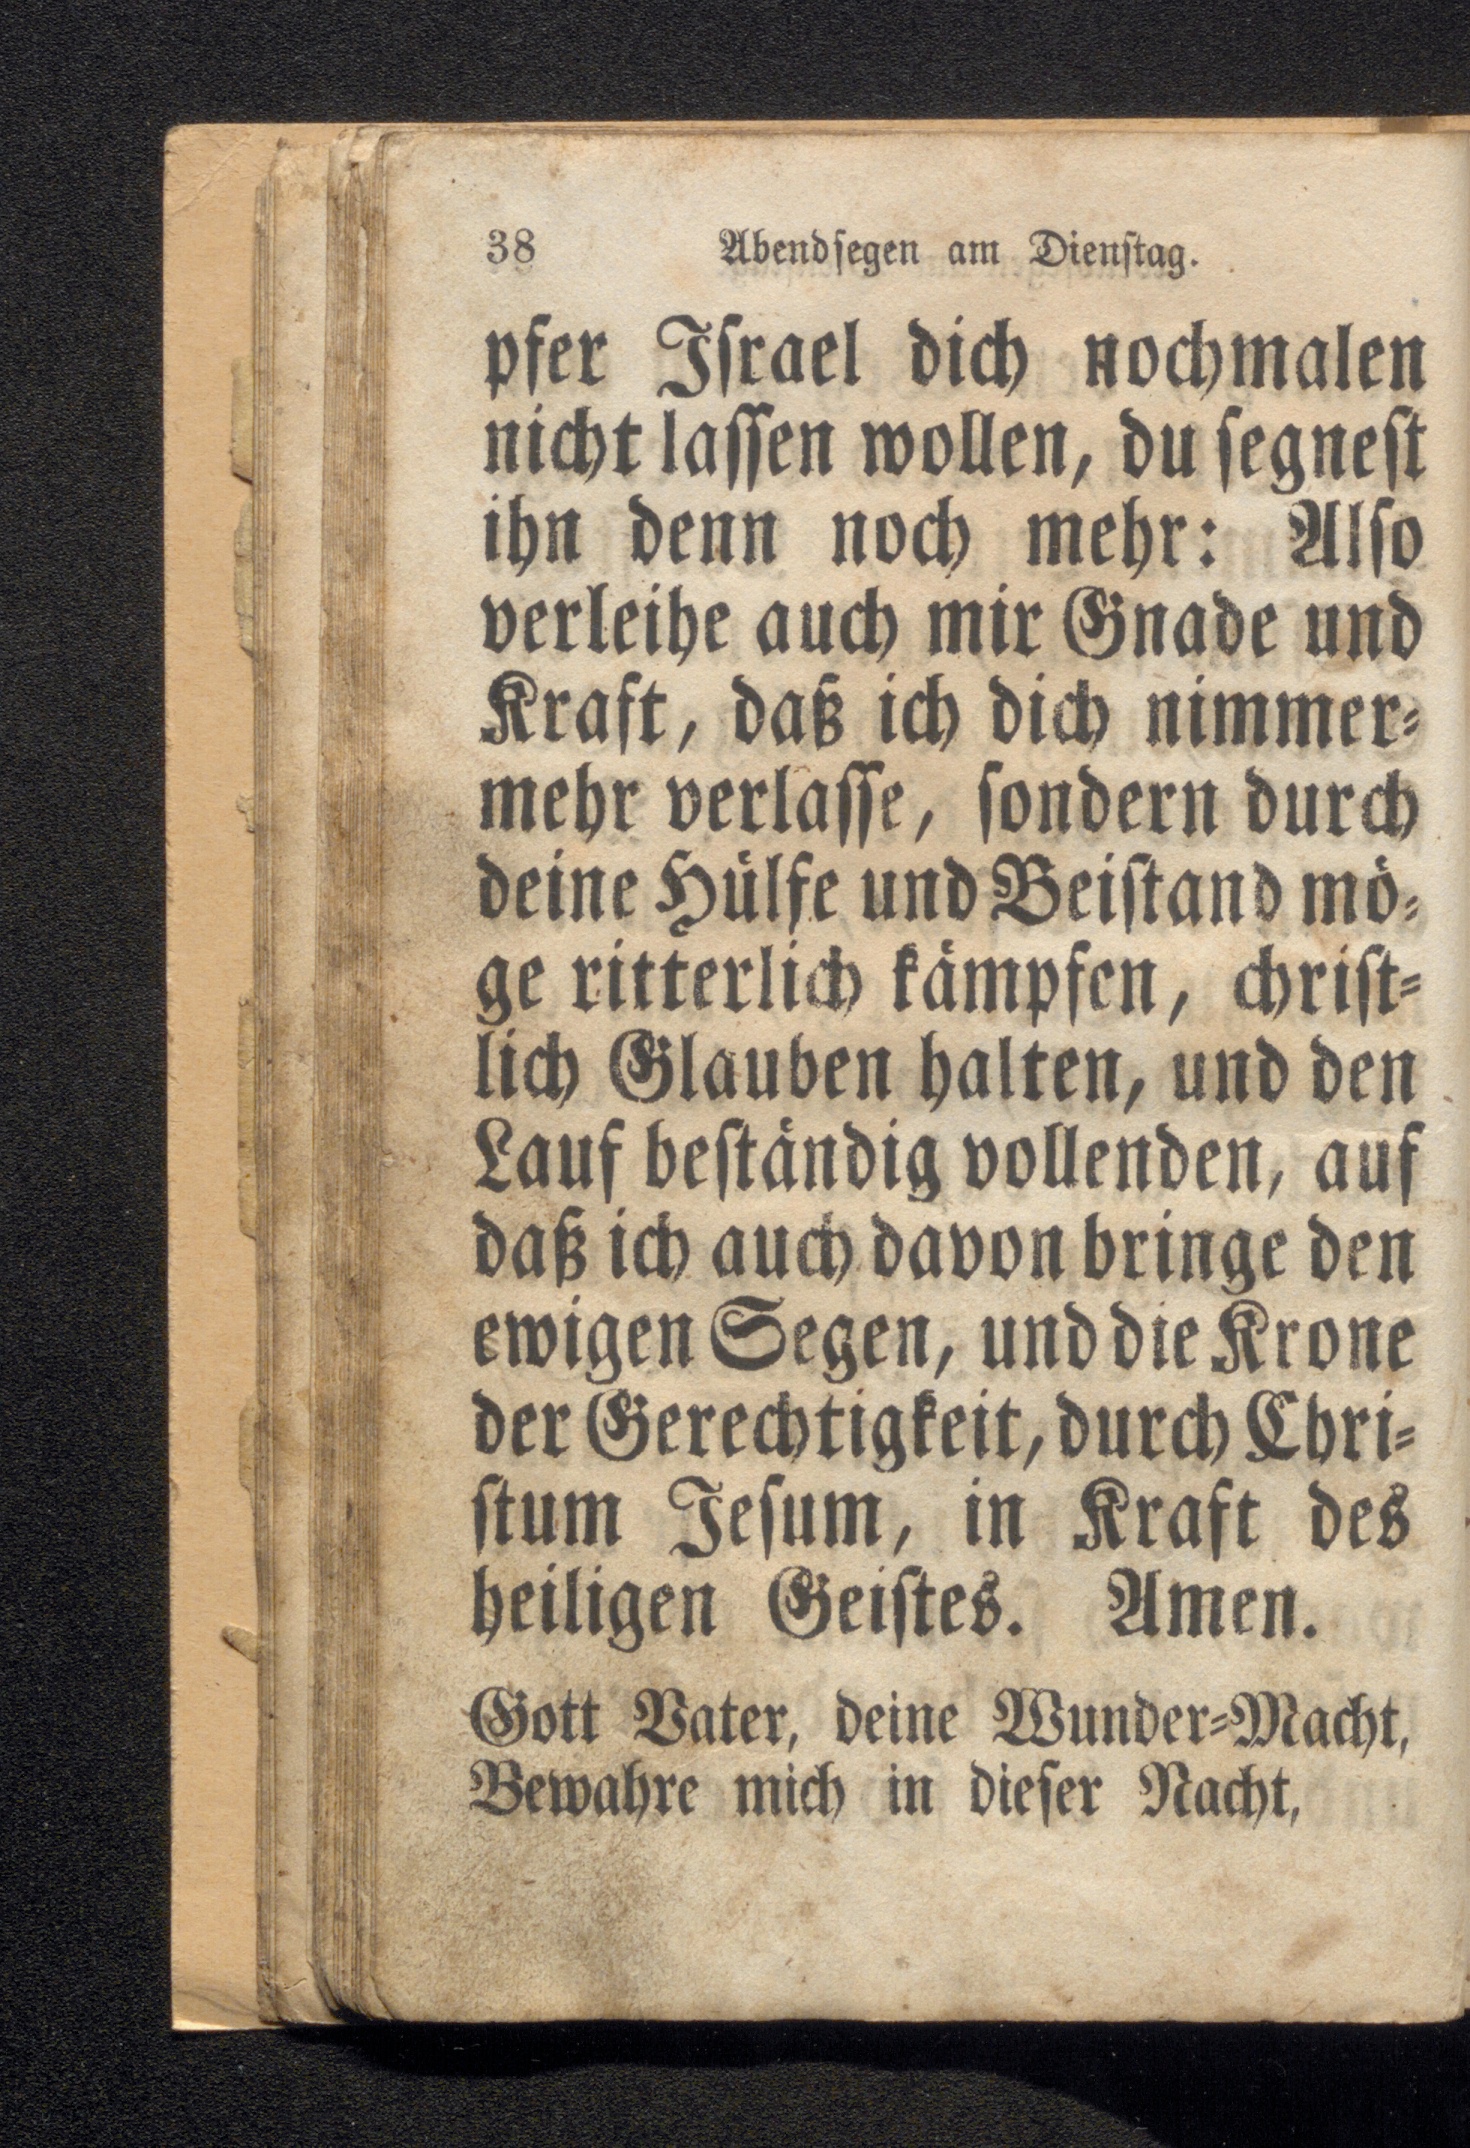 38 Abendſegen am Dienſtag.
pfer Iſrael dich nochmalen
nicht laſſen wollen, du ſegneſt
ihn denn noch mehr: Alſo
verleihe auch mir Gnade und
Kraft, daß ich dich nimmer⸗
mehr verlaſſe, ſondern durch
deine Hülfe und Beiſtand mö⸗
ge ritterlich kämpfen, chriſt⸗
lich Glauben halten, und den
Lauf beſtändig vollenden, auf
daß ich auch davon bringe den
ewigen Segen, und die Krone
der Gerechtigkeit, durch Chri⸗
ſtum Jeſum, in Kraft des
heiligen Geiſtes. Amen.
Gott Vater, deine Wunder⸗Macht,
Bewahre mich in dieſer Nacht,